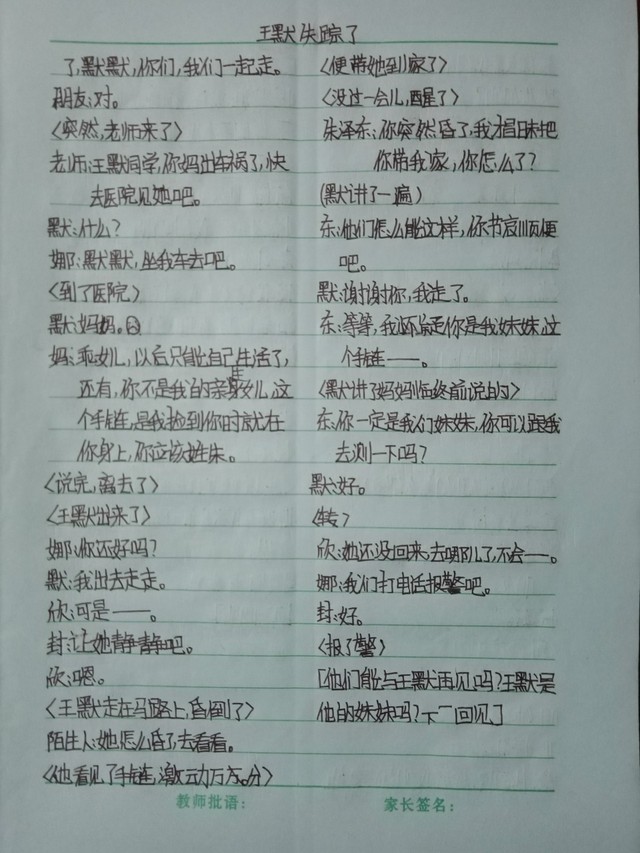 王默失踪了
了,默默,你们,我们一起走。
朋友:对。
〈突然,老师来了〉
老师:王默同学,你妈出车祸了,快
去医院见她吧。
默:什么?
娜:默默,坐我车去吧。
〈到了医院〉
默:妈妈。
妈:乖女儿,以后只能自己生活了,
还有,你不是我的亲生女儿,这
个手链,是我捡到你时就在
你身上,你应该姓朱。
〈说完,离去了〉
〈王默出来了〉
娜:你还好吗?
默:我出去走走。
欣:可是——。
封:让她静静吧。
欣:嗯。
〈王默走在马路上,昏倒了〉
陌生人:她怎么昏了,去看看。
〈他看见了手链,激动万分〉
教师批语:
〈便带她到家了〉
〈没过一会儿,醒了〉
朱泽东:你突然昏了,我才把
你带我家,你怎么了?
(默讲了一遍)
东:他们怎么能这样,你节哀顺便
吧。
默:谢谢你,我走了。
东:等等,我还你是我妹妹,这
个手链——。
〈默讲了妈妈临终前说的〉
东:你一定是我们妹妹,你可以跟我
去测一下吗?
默:好。
〈转〉
欣:她还没回来,去哪儿了,不会——。
娜:我们打电话报警吧。
封:好。
〈报了警〉
[他们能与王默再见吗?王默是
他的妹妹吗?下一回见]
家长签名: